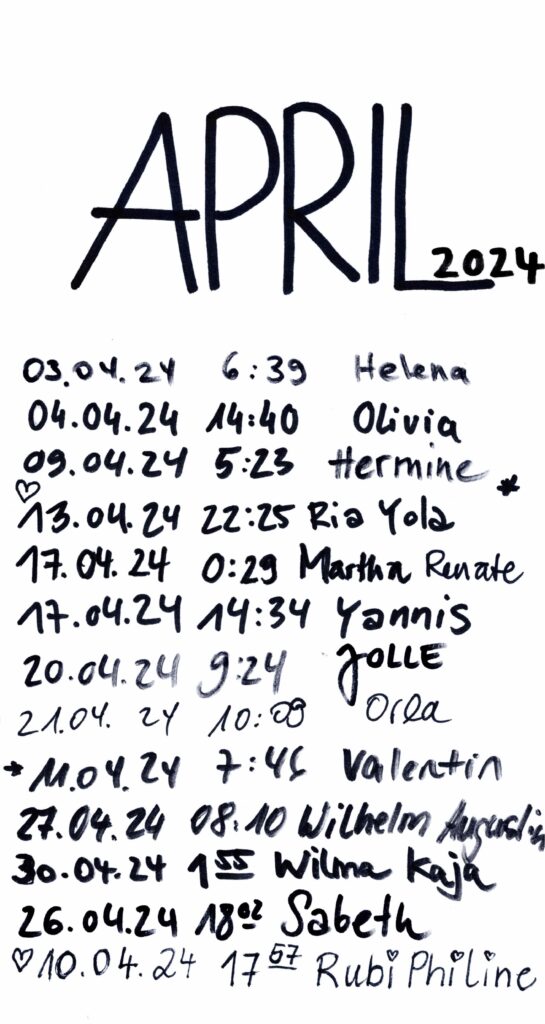 APRIL
2024
03.04.24 6:39 Helena
04.04.24 14:40 Olivia
09.04.24 5:23 Hermine
♡ *
13.04.24 22:25 Ria Yola
17.04.24 0:29 Martha Renate
17.04.24 14:34 Yannis
20.04.24 9:24 JOLLE
21.04. 24 10:09 Orla
* 11.04.24 7:46 Valentin
27.04.24 08:10 Wilhelm
30.04.24 1 55 Wilma Kaja
26.04.24 18 02 Sabeth
♡ 10.04.24 17 57 Rubi Philine